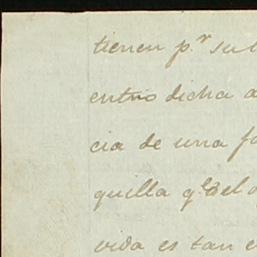 tienen p.r su
entrio dicha a
cia de una fa
quilla q.e el
vida es tan e